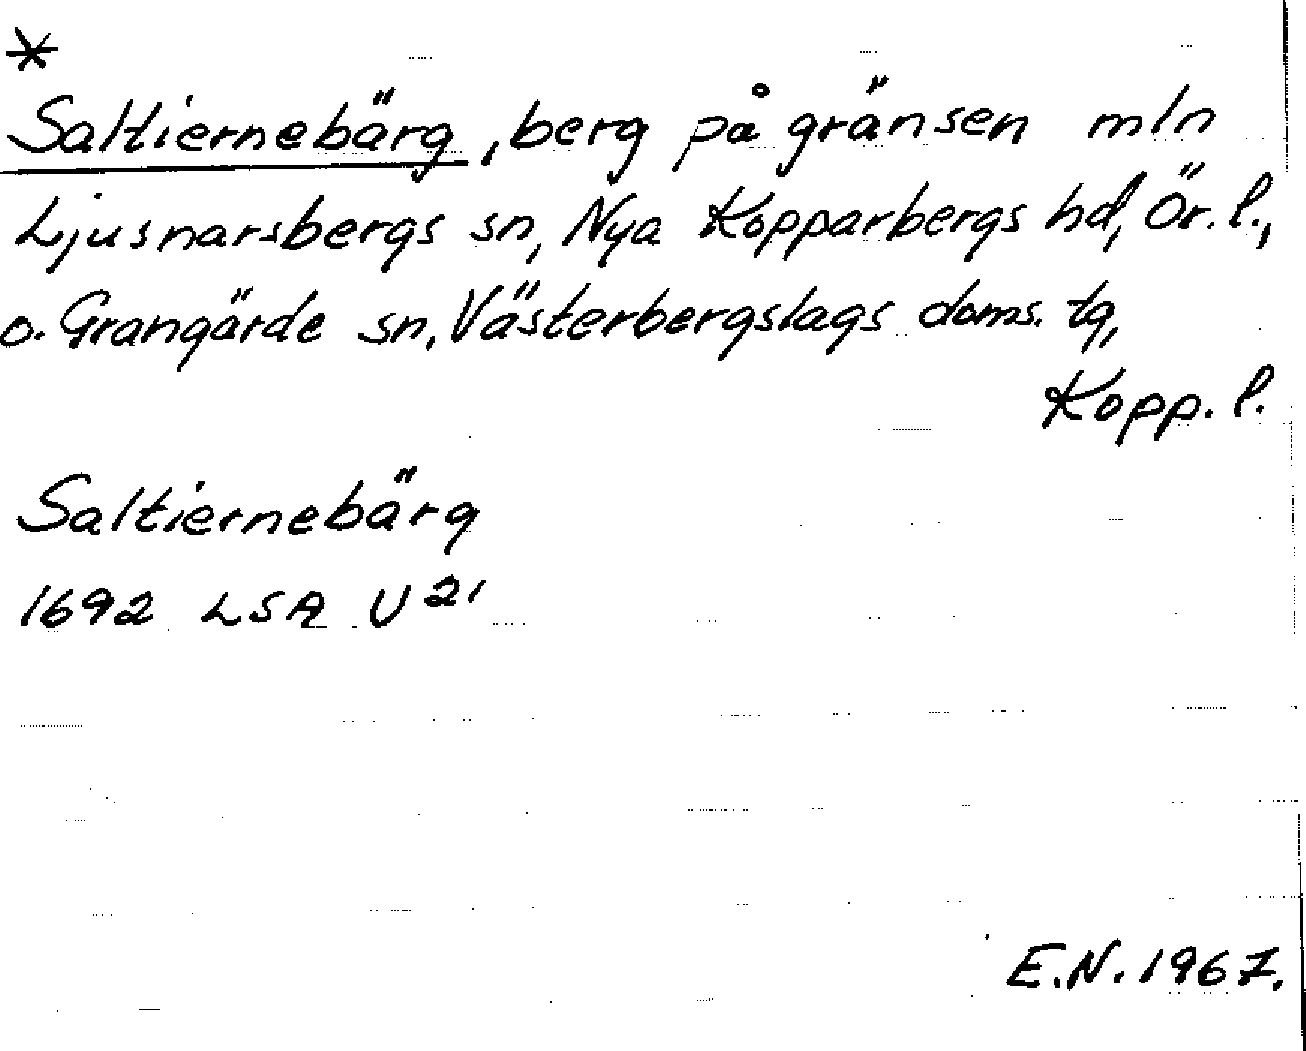 *
Saltiernebärg, berg på gränsen mln
Ljusnarsbergs sn, Nya Kopparbergs hd, Ör. l.,
o. Grangärde sn, Västerbergslags doms. tg,
Kopp. l.
Saltiernebärg
1692 LSA U 21
E.N. 1967.